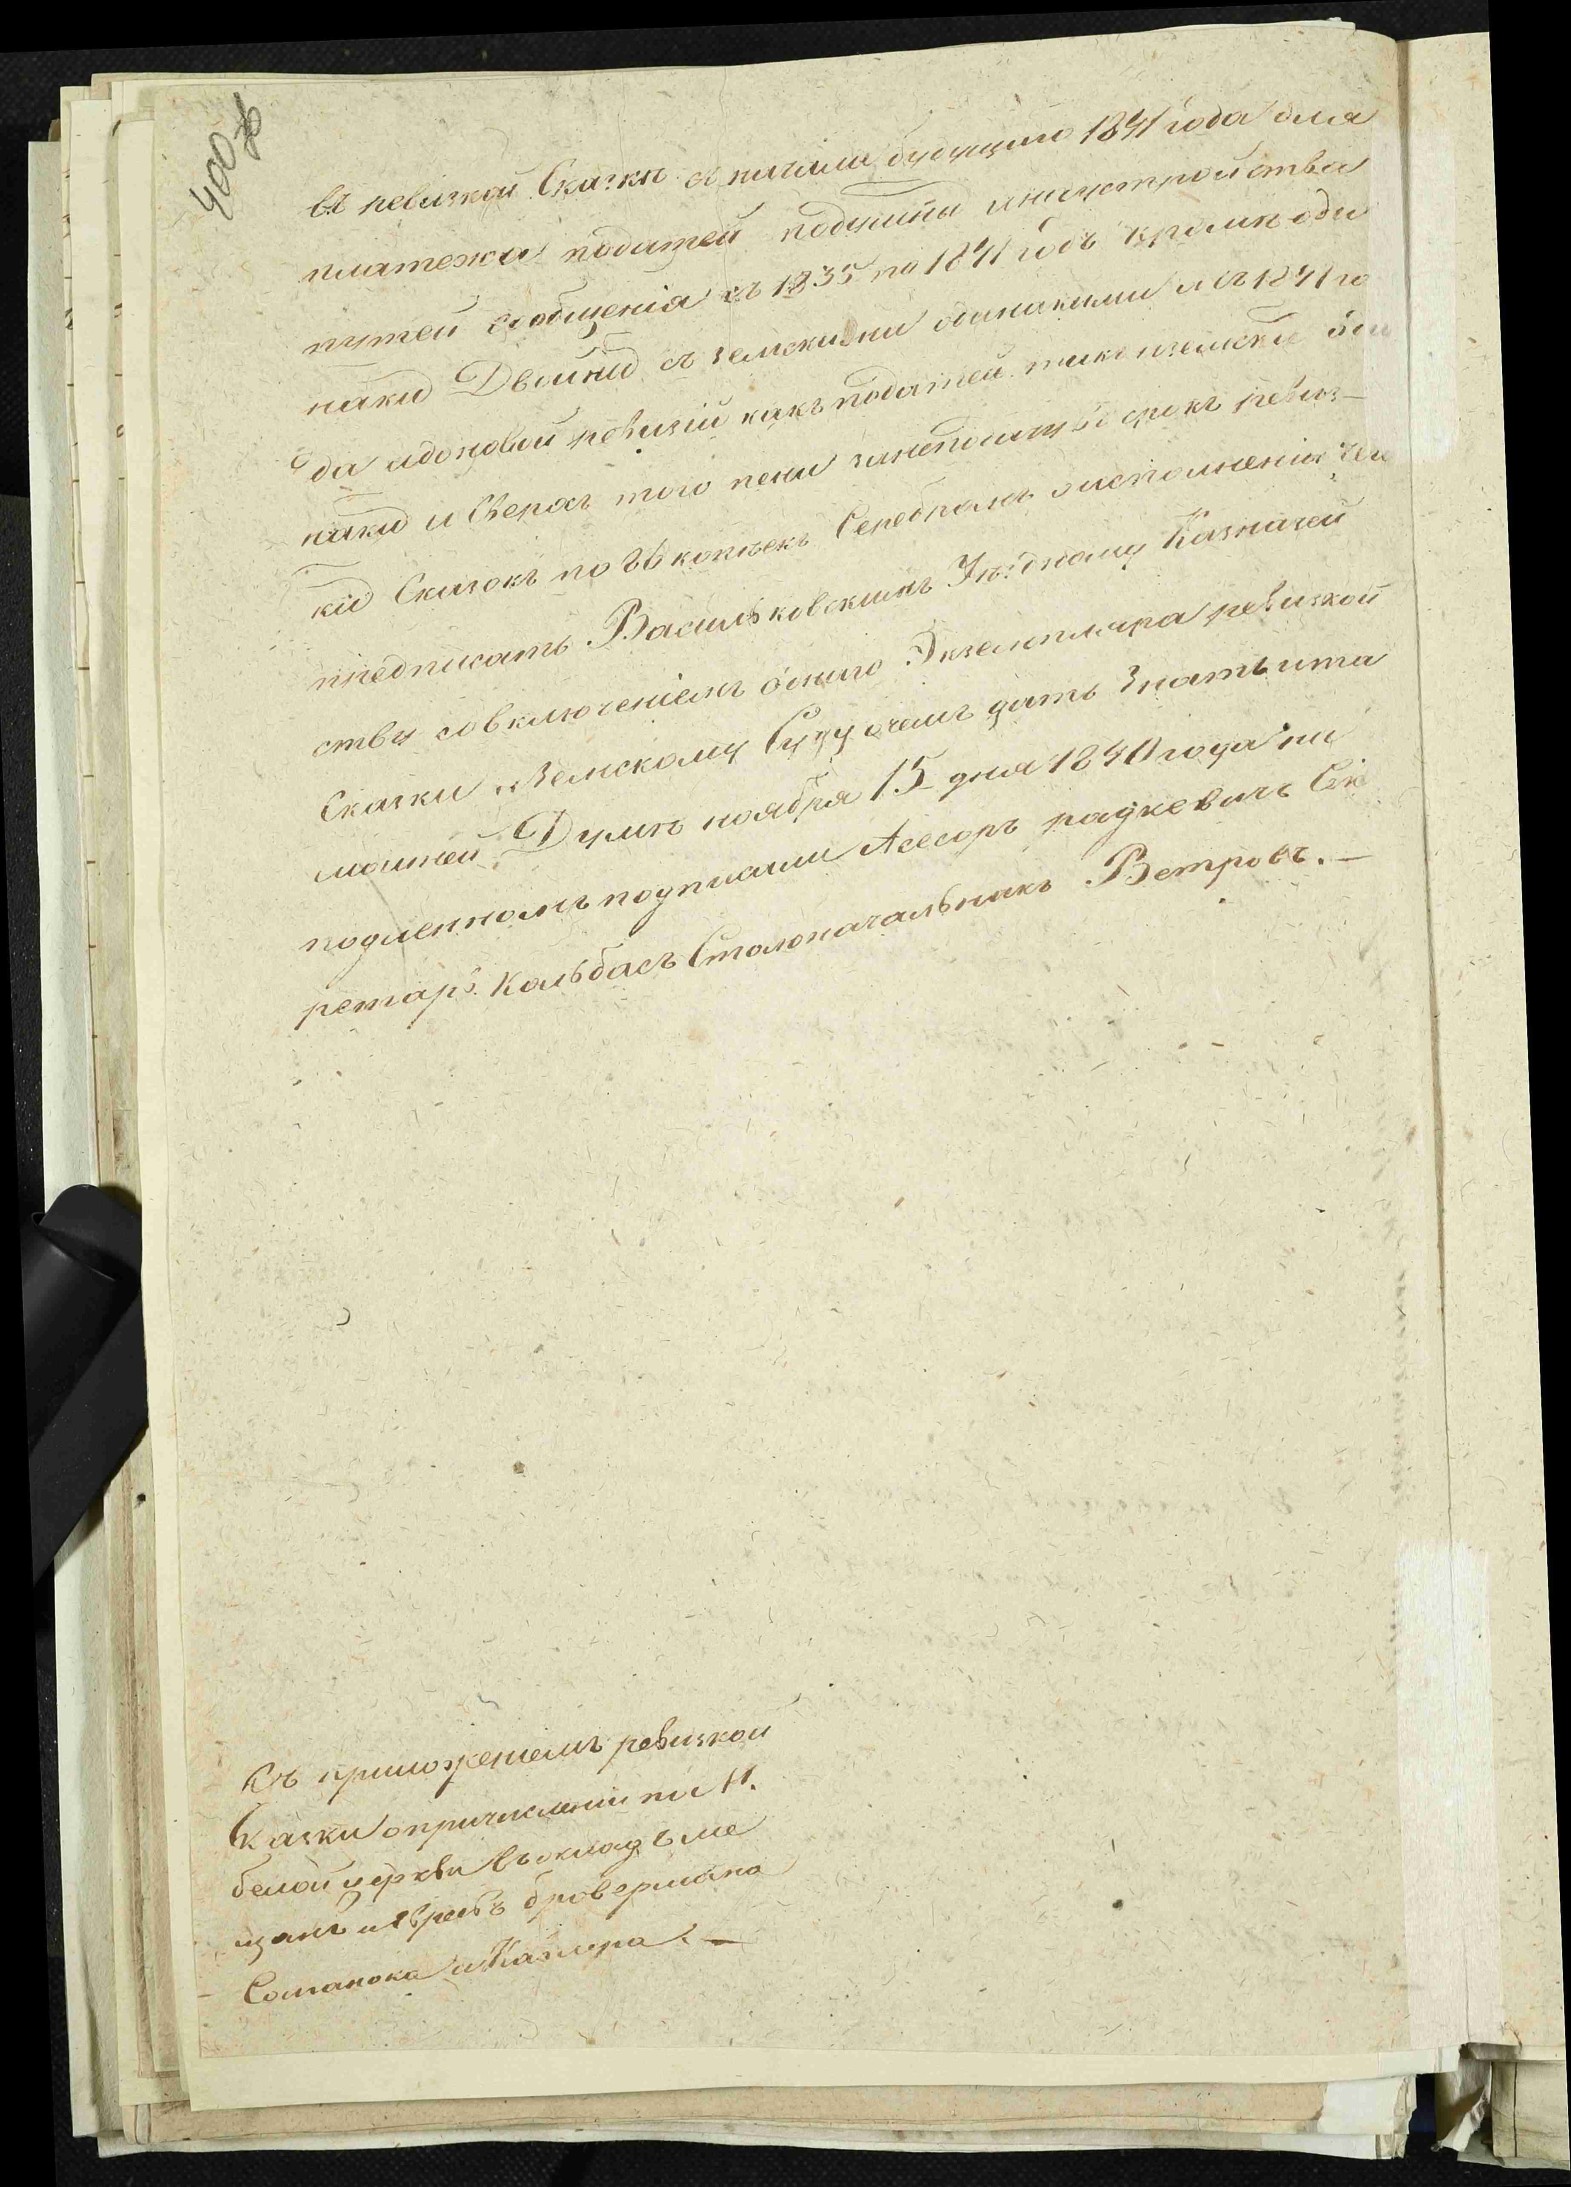 400 об
въ ревизкой Сказкѣ съ начала будущаго 1841 года для
платежа податей подушны инаустройства
путей сообщенія съ 1835 по 1841 годъ кромѣ оди
наки Двойни съ земскими одинакими и съ 1841 го
да и до новой ревизіи какъ податей такъ и земски оди
наки и Сверхъ того пени за неподачу въ срокъ ревиз-
кіи Сказокъ по 86 копѣекъ Серебромъ о исполненіи чего
предписать Васильковскимъ Уѣздному Казначей
ству со включеніемъ однаго Экземпляра ревизкой
Сказки и Земскому Суду о чемъ дать Знать и та
мошней Думѣ ноября 15 дня 1840 года на
подленномъ подписали Асесоръ радкевичъ Сек
ретарь Кольбасъ Столоначальникъ Ветровъ.—
Съ приложеніемъ ревизкой
Сказки о причисленіи по М.
белой церкви въ окладъ ме
щанъ и евреевъ бровермана
и Каплера.—